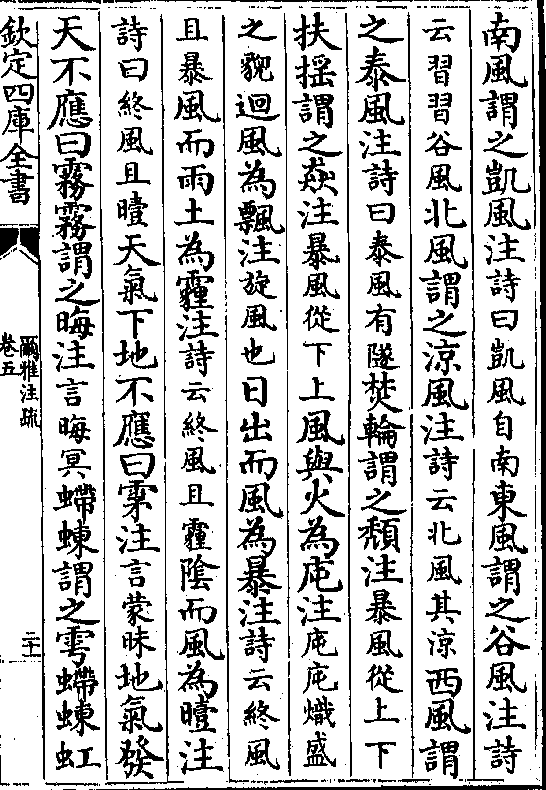 南風謂之凱風注詩曰凱風自南東風謂之谷風注詩
云習習谷風北風謂之涼風注詩云北風其涼西風謂
之泰風注詩曰泰風有隧焚輪謂之頹注暴風從上下
扶揺謂之猋注暴風從下上風與火為庉注庉庉熾盛
之貌迴風為飄注旋風也日出而風為暴注詩云終風
且暴風而雨土為霾注詩云終風且霾陰而風為曀注
詩曰終風且曀天氣下地不應曰雺注言蒙昧地氣發
天不應曰霧霧謂之晦注言晦冥螮蝀謂之雩螮蝀虹
欽定四庫全書
爾雅注疏
卷五
二十